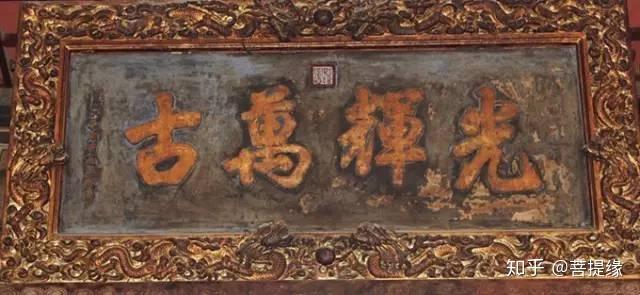 光輝萬古
知乎 @菩提缘